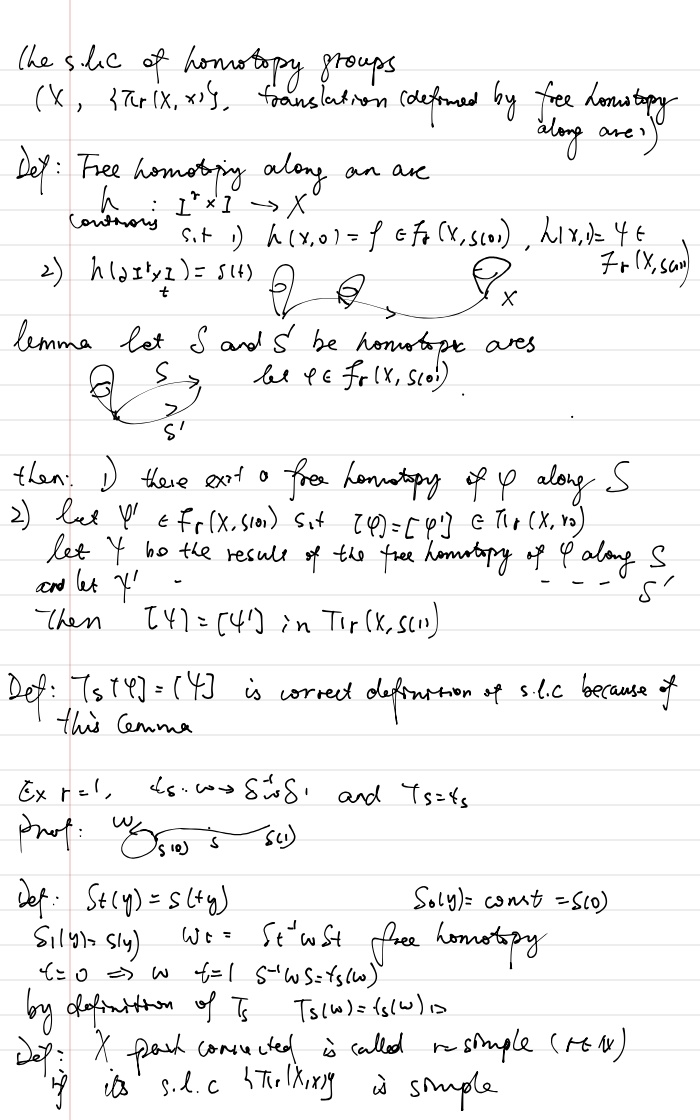 the s.l.c of homotopy groups
(X, {πr(X, x)}, translation (defined by free homotopy
along arcs))
Def: Free homotopy along an arc
h : I^r × I → X
continous
s.t 1) h(x,0) = φ ∈ Fr(X, S(0)), h(x,1) = ψ ∈
Fr(X, S(1))
2) h(∂I^r × I) = S(t)
t
X
lemma let S and S' be homotopic arcs
S let φ ∈ Fr(X, S(0))
S'
then: 1) there exit a free homotopy of φ along S
2) let φ' ∈ Fr(X, S(0)) s.t [φ] = [φ'] ∈ πr(X, x0)
let ψ be the result of the free homotopy of φ along S
and let ψ' - - - - S'
Then [ψ] = [ψ'] in πr(X, S(1))
Def: Ts[φ] = [ψ] is correct definition of s.l.c because of
this lemma
Ex r=1, ts: w → S^-1 w S, and Ts = ts
Proof: w S(0) S S(1)
Def: St(y) = S(ty) S0(y) = const = S(0)
S1(y) = S(y) wt = St^-1 w St free homotopy
t=0 ⇒ w t=1 S^-1 w S = ts(w)
by definition of Ts Ts(w) = ts(w) □
Def: X path connected is called r-simple (r ∈ N)
if its s.l.c {πr(X,x)} is simple